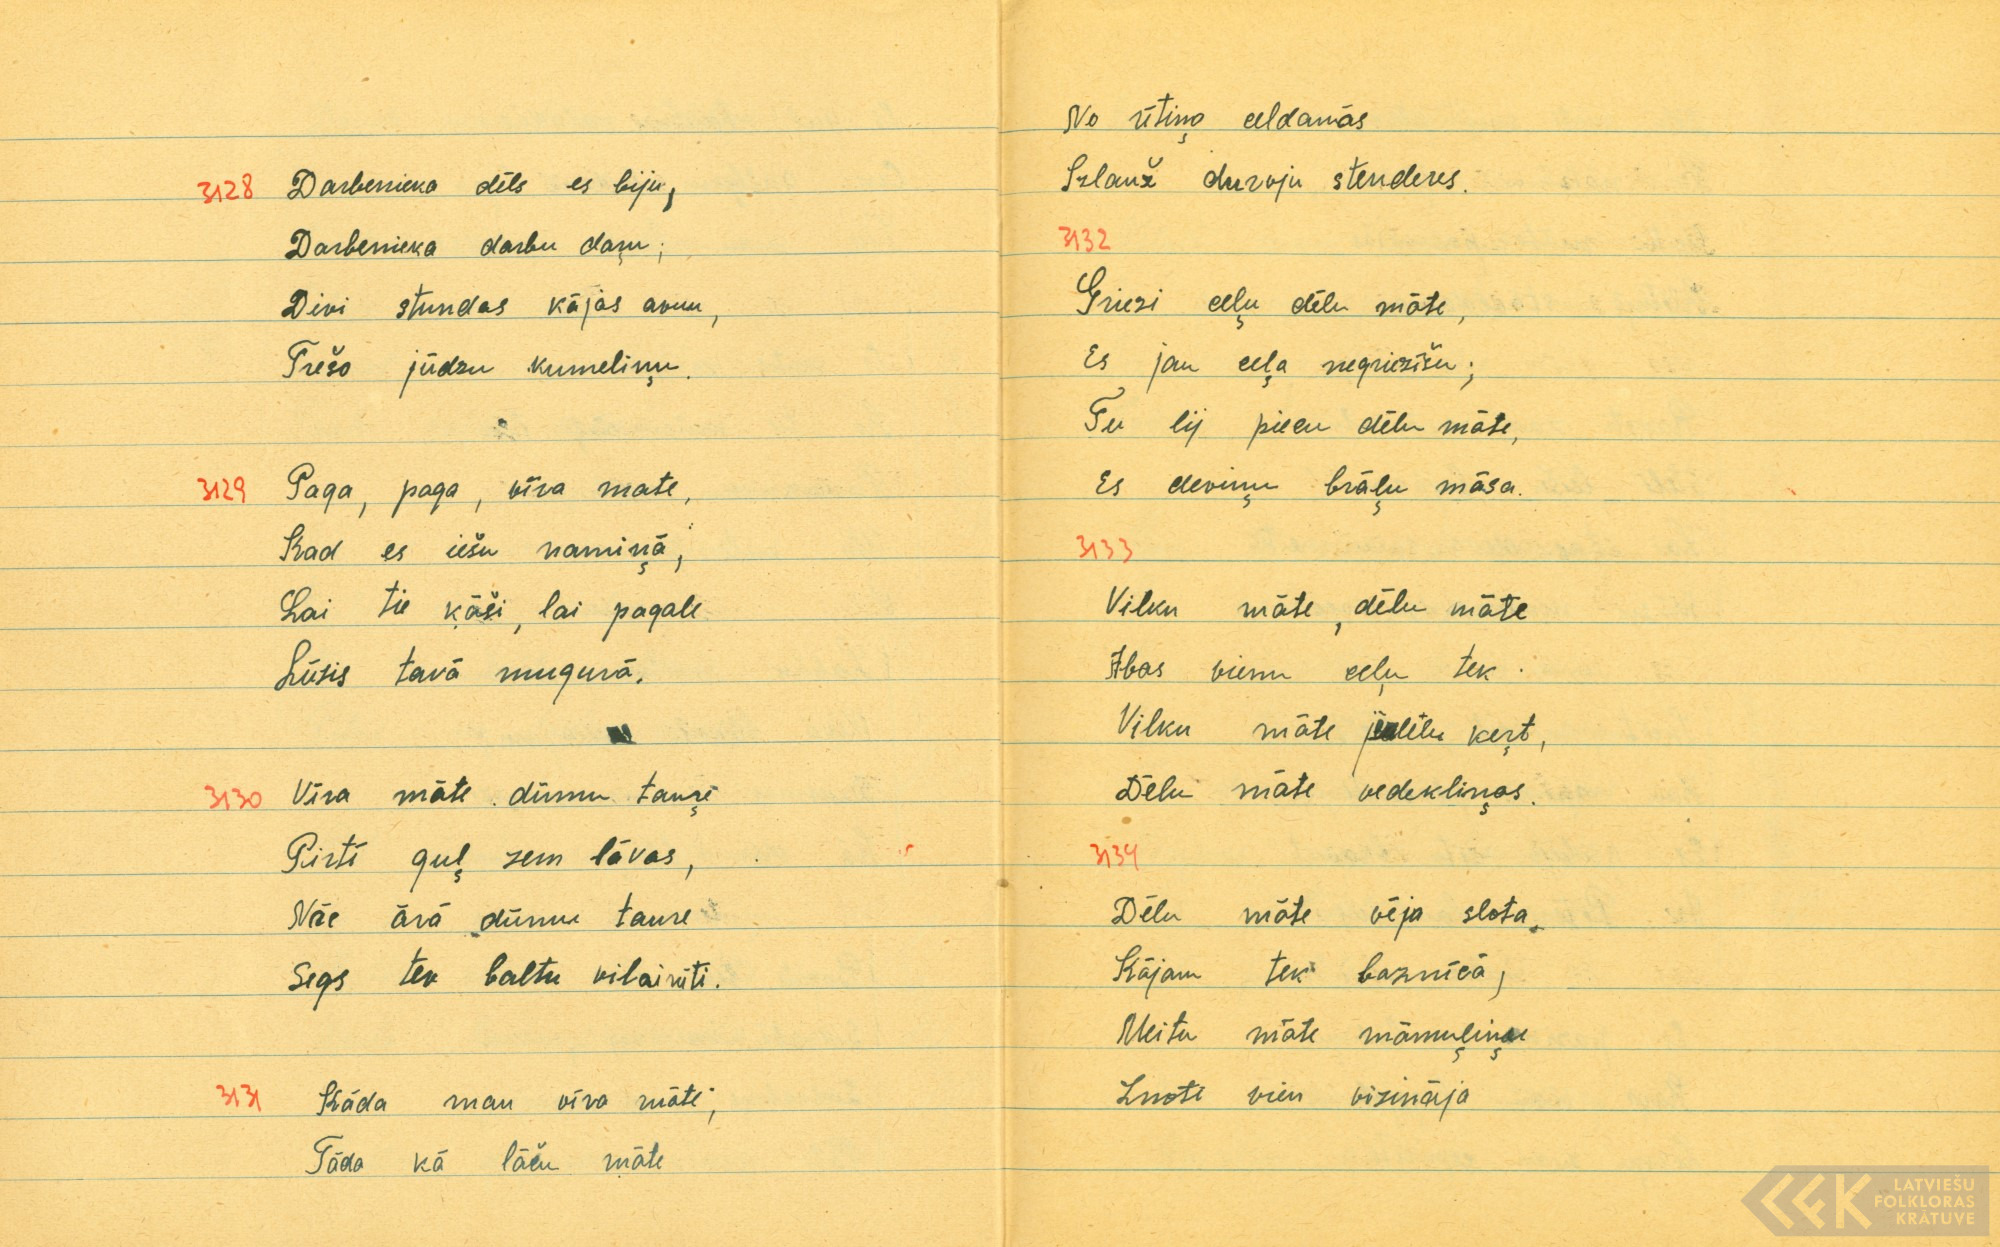 3128 Darbenieka dēls es biju,
Darbenieka darbu daŗu;
Divi stundas kājas avuu,
Trešo jūdzu kumeliņu.
3129 Paga, paga, vīra mate,
Kad es iešu namiņā,
Lai tie ķāši, lai pagale
Lūsis tavā mugurā.
3130 Vīra māte dūmu tauŗe
Pirtī guļ zem lāvas,
Nāc ārā dūmu taure
Segs tev baltu vilainīti.
3131 Kāda man vīra māte,
Tāda kā lāču māte
No istiņņ celdamās
Izlauž durvju stenderes.
3132
Griezi ceļu dēlu māte,
Es jau ceļa negriezīšu;
Tu bij piecu dēlu māte,
Es deviņu brāļu māsa.
3133
Vilku māte, dēlu māte
Abas vienu ceļu tek.
Vilku māte ķeŗt,
Dēlu māte vedekliņas.
3134
Dēlu māte vēja slota,
Kājam tek baznīcā,
Meitu māte māmuļiņa
Znoti vien vizināja
LATVIEŠU
FOLKLORAS
KRĀTUVE